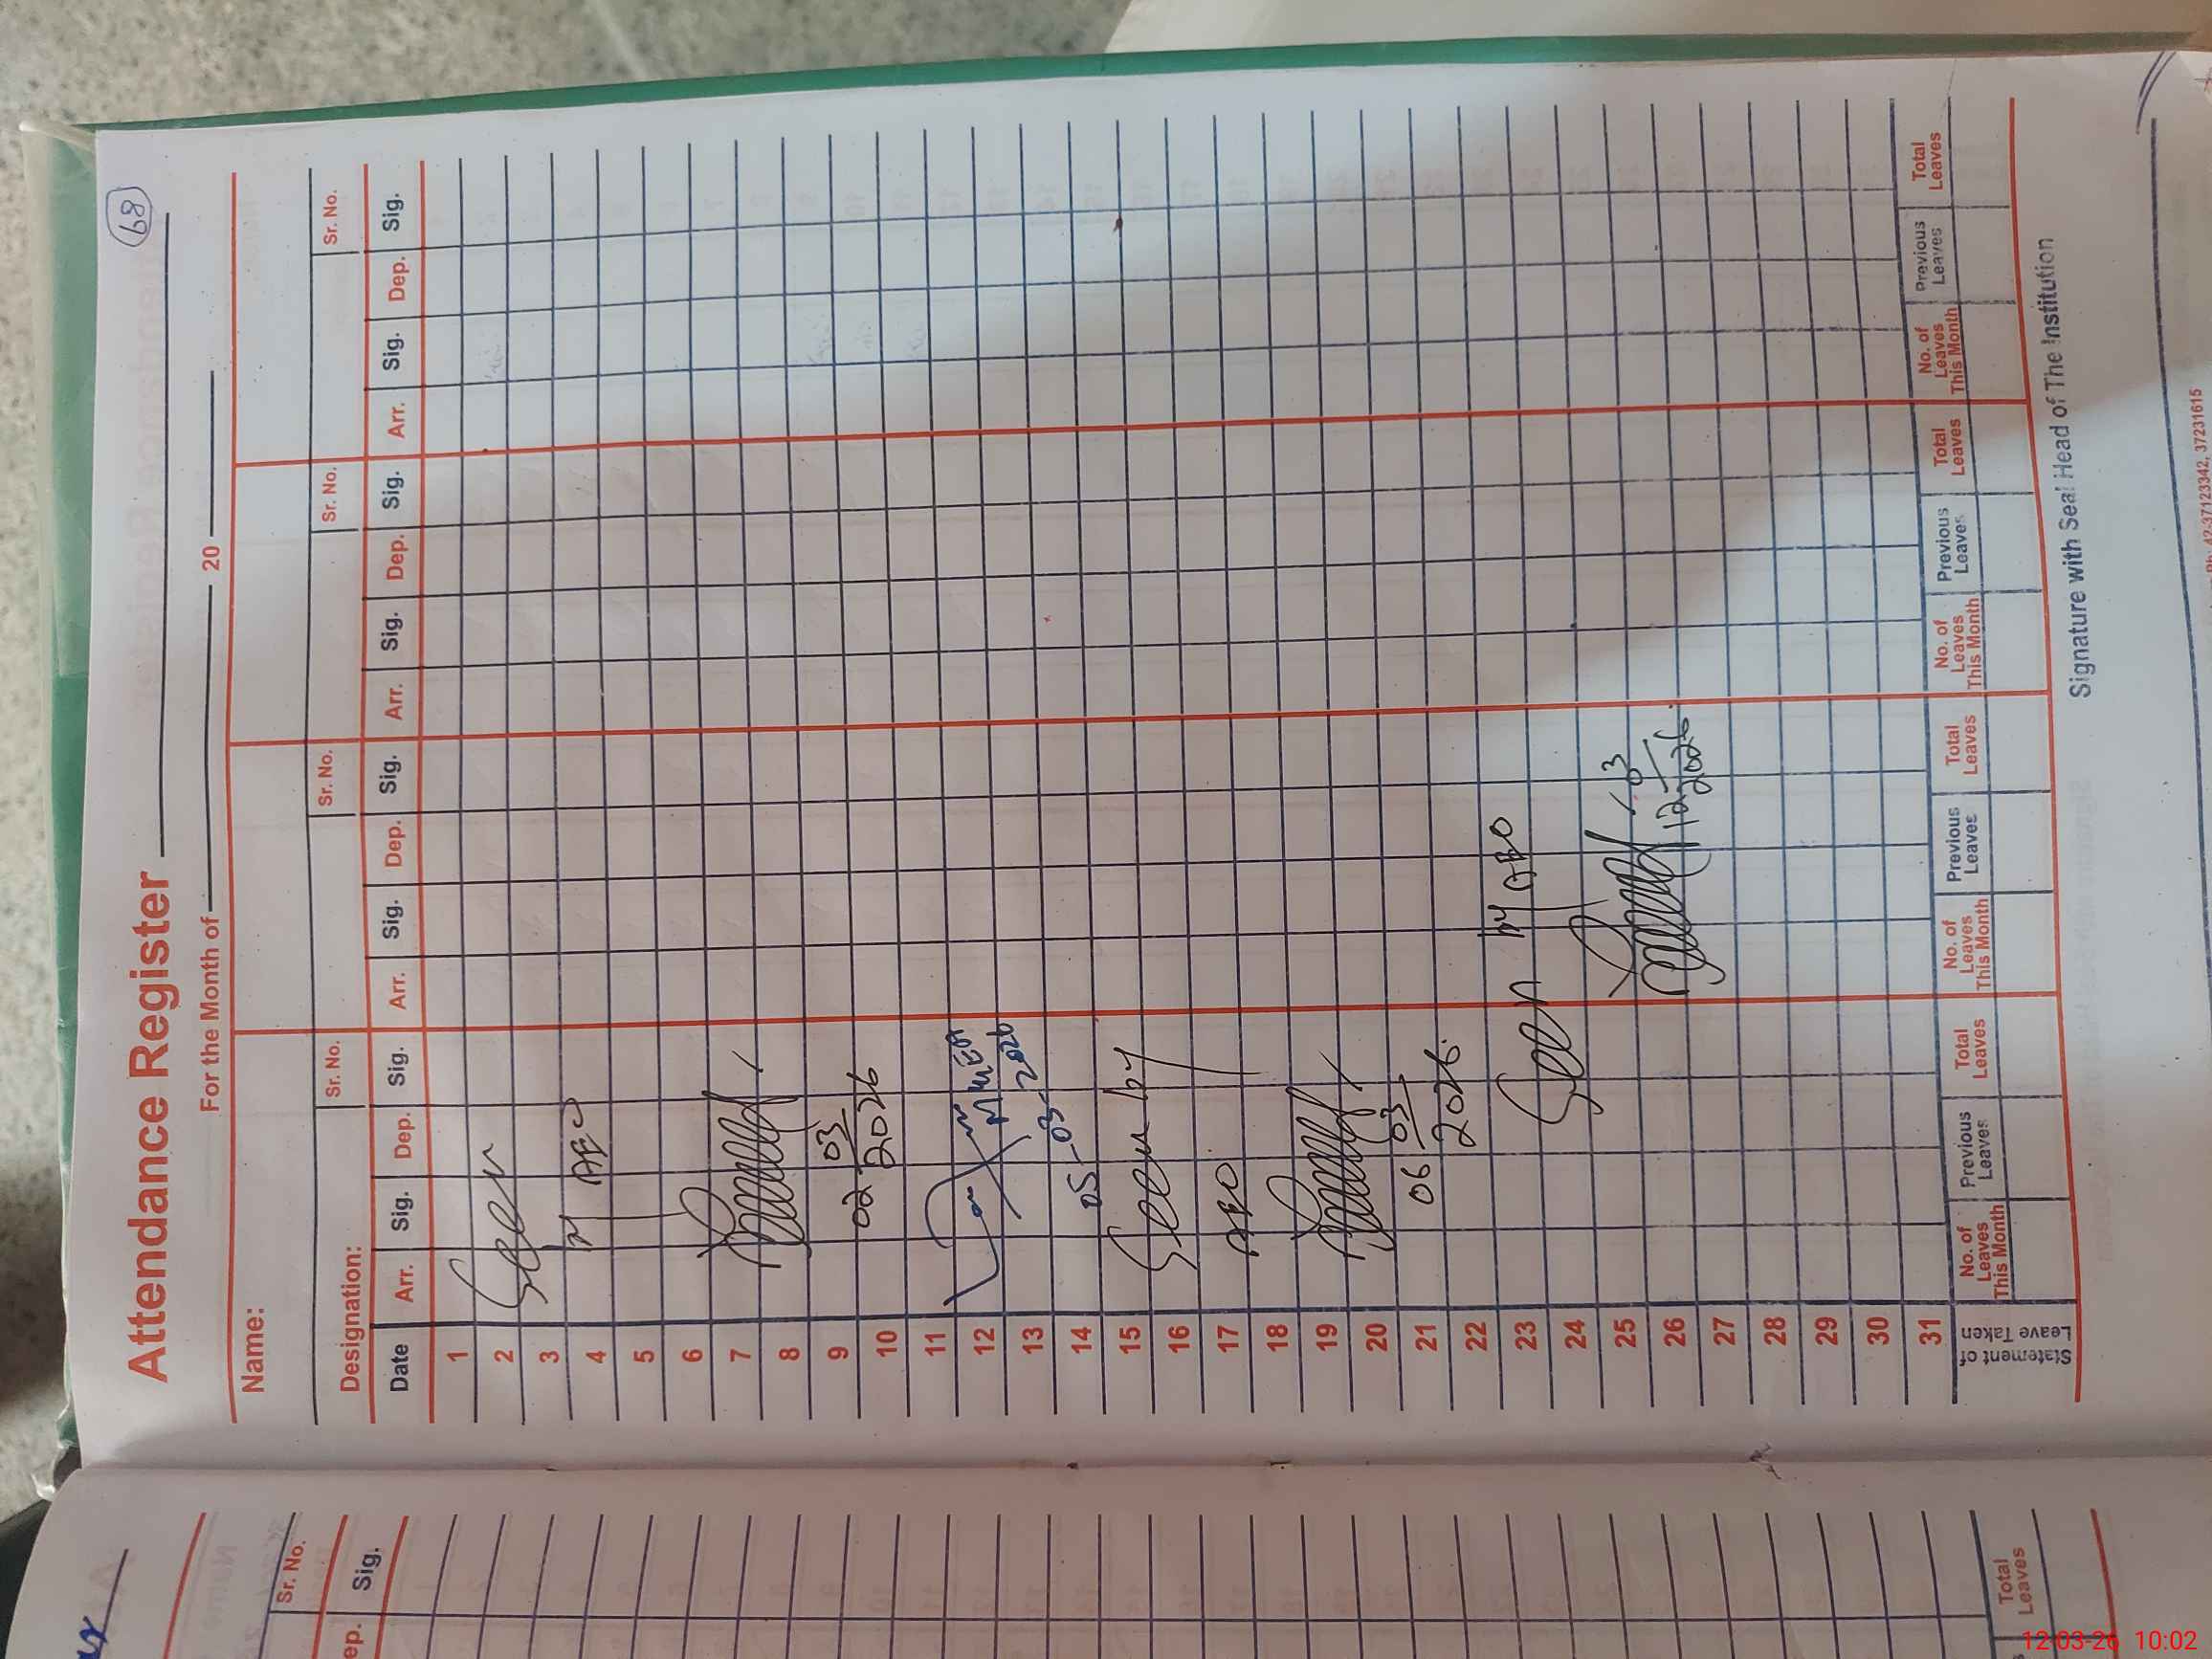 68
Attendance Register
For the Month of 20
Name:
Sr. No. Sr. No. Sr. No. Sr. No.
Designation:
Date Arr. Sig. Dep. Sig. Arr. Sig. Dep. Sig. Arr. Sig. Dep. Sig. Arr. Sig. Dep. Sig.
1
2 Seen
3
4 by AEO
5
6
7
8
9 02 03
10 2026
11
12 MMEA
13 2026
14 05-03-
15 Seen by
16
17 AEO
18
19
20
21 06 03
22 2026.
23 Seen by AEO
24
25 03
26 12 2026
27
28
29
30
31
Statement of Leave Taken
No. of Leaves This Month Previous Leaves Total Leaves No. of Leaves This Month Previous Leaves Total Leaves No. of Leaves This Month Previous Leaves Total Leaves No. of Leaves This Month Previous Leaves Total Leaves
Signature with Seal Head of The Institution
Ph: 42-37123342, 37231615
Sr. No.
ep. Sig.
Total Leaves
12-03-26 10:02